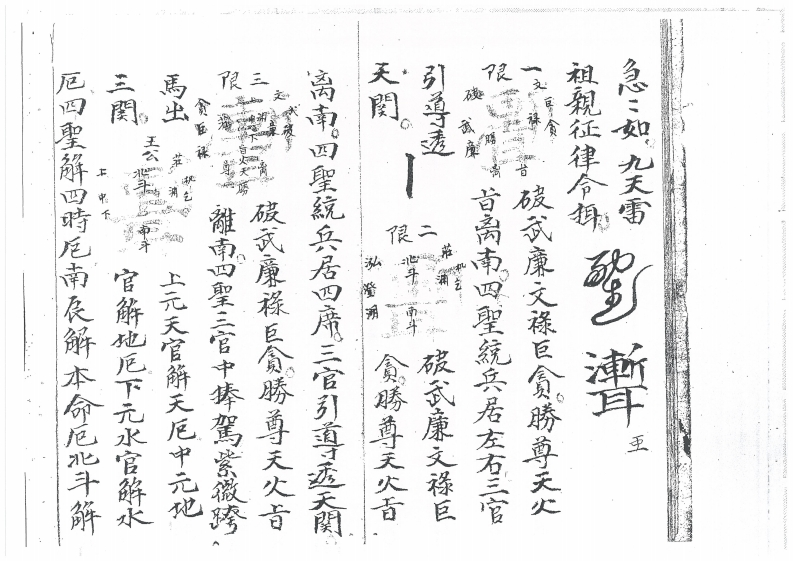 急〻如九天雷
祖親征律令
漸耳
一限
文巨祿貪
破武廉
破武廉文祿巨貪勝尊天火
旨离南四聖統兵居左右三官
引導透
天関
二限
北斗
南斗
破武廉文祿巨
貪勝尊天火旨
离南四聖統兵居四席三官引導透天関
三限
貪巨祿
破武廉祿巨貪勝尊天火旨
離南四聖三官中捧駕紫微跨
馬出
三関
北斗
南斗
上中下
上元天官解天厄中元地
官解地厄下元水官解水
厄四聖解四時厄南辰解本命厄北斗解